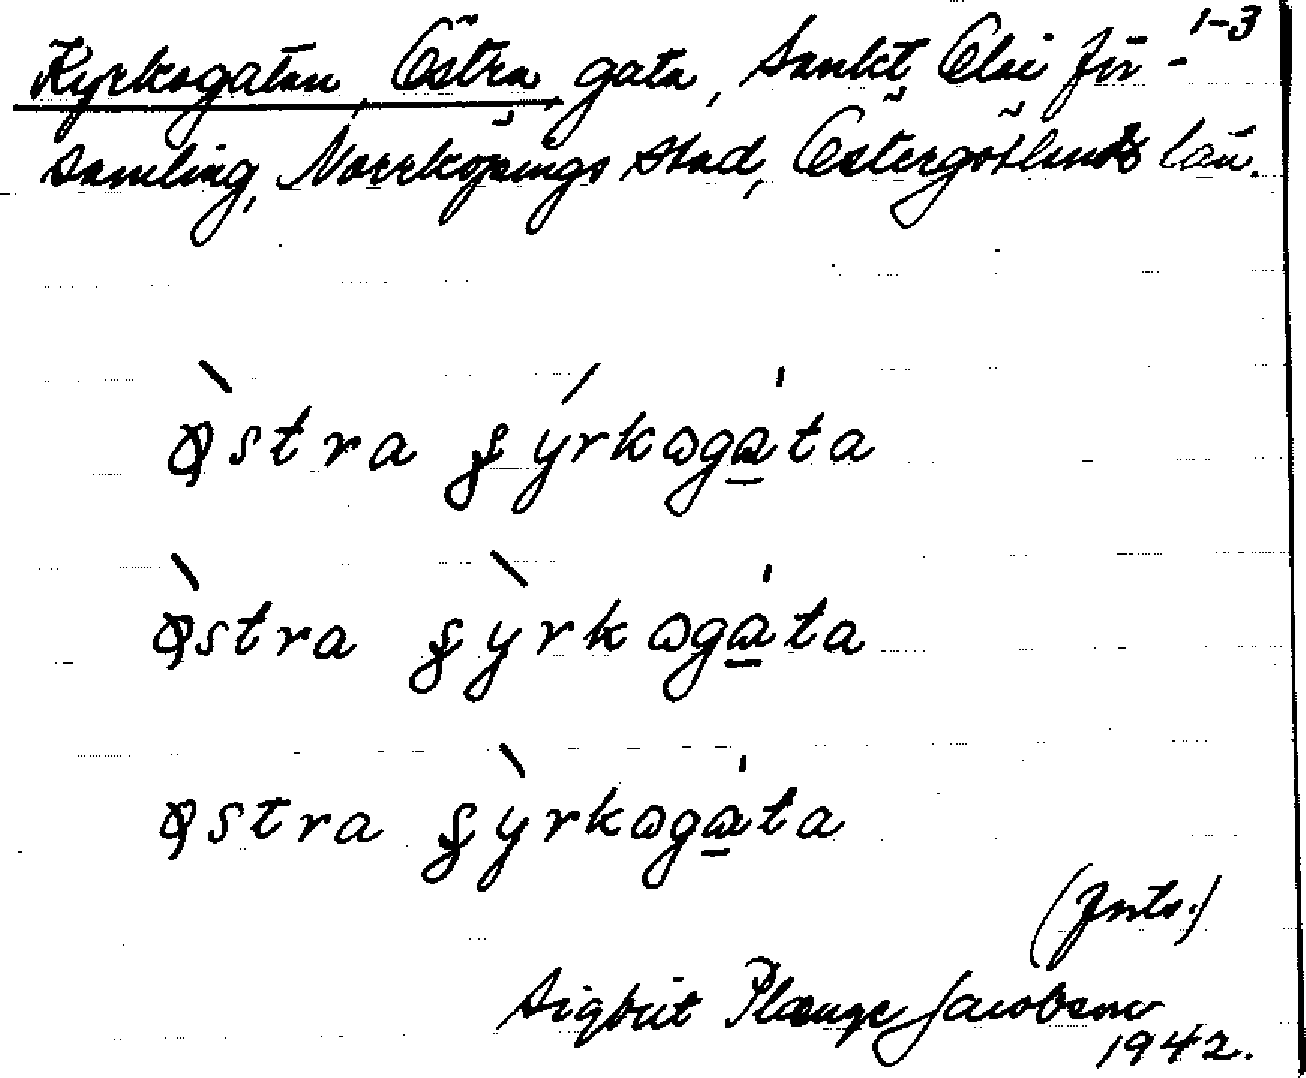 1-3
Kyrkogatan, Östra, gata, Sankt Olai för-
samling, Norrköpings stad, Östergötlands län.
östra ɕýrkogáta
östra ɕỳrkogáta
östra ɕỳrkogáta
Sigbrit Plænge Jacobson
1942.